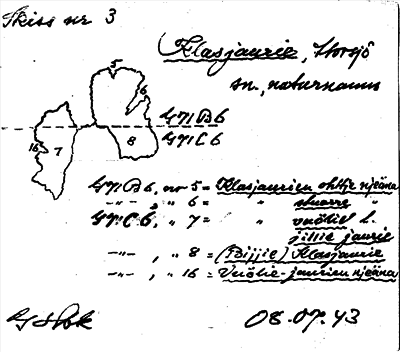 Skiss nr 3
Klasjaurie, Storsjö
sn., naturnamn
5
6
G71B6
G71C6
16
7
8
G71B6, nr 5 = Klasjaurien ohttje njeäna
-"- " 6 = " stuorre "
G71C6, " 7 = " vuölie l.
jillie jaurie
-"- , " 8 = (Bijjie) Klasjaurie
-"- , " 16 = Vuölie-jaurien njeäna
08.07.43